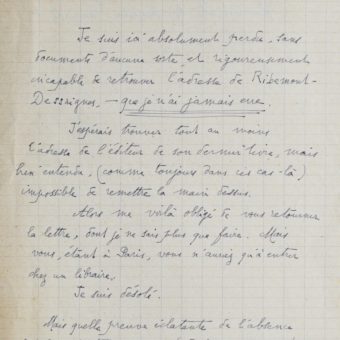 Je suis ici absolument perdu, sans
documents d'aucune sorte, et rigoureusement
incapable de retrouver l'adresse de Ribemont-
Dessaignes, — que je n'ai jamais eue.
J'espérais trouver tout au moins
l'adresse de l'éditeur de son dernier livre, mais
bien entendu, (comme toujours dans ces cas-là)
impossible de remettre la main dessus.
Alors me voilà obligé de vous retourner
la lettre, dont je ne sais plus que faire. Mais
vous, étant à Paris, vous n'aurez qu'à entrer
chez un libraire.
Je suis désolé.
Mais quelle preuve éclatante de l'absence